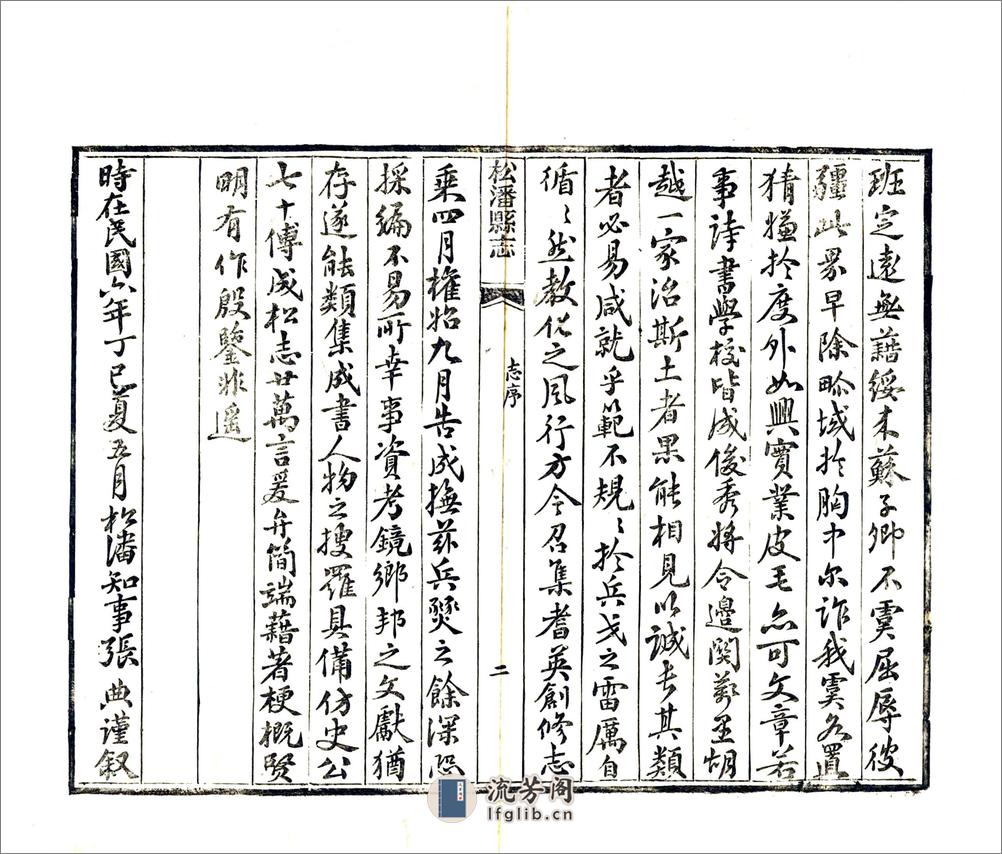 班定遠無藉綏来蘇子卿不虞屈辱彼
疆此界早除畛域扵胸中尔詐我虞久置
猜嫌扵度外如興實業皮毛亦可文章若
事詩書學校皆成俊秀將令邊関萬里胡
越一家治斯土者果能相見以誠者其類
者必易咸就乎範不規〻扵兵戈之雷厲自
循〻然教化之風行方今召集耆英創修志
松潘縣志
志序
二
乘四月權始九月告成撫茲兵燹之餘深恐
採編不易所幸事資考鏡鄉邦之文獻猶
存遂能類集成書人物之搜羅具備仿史公
七十傳成松志廿萬言爰弁簡端藉著梗概賢
明有作殷鑒非遥
時在民國六年丁巳夏五月松潘知事張典謹叙
流芳阁
lfglib.cn